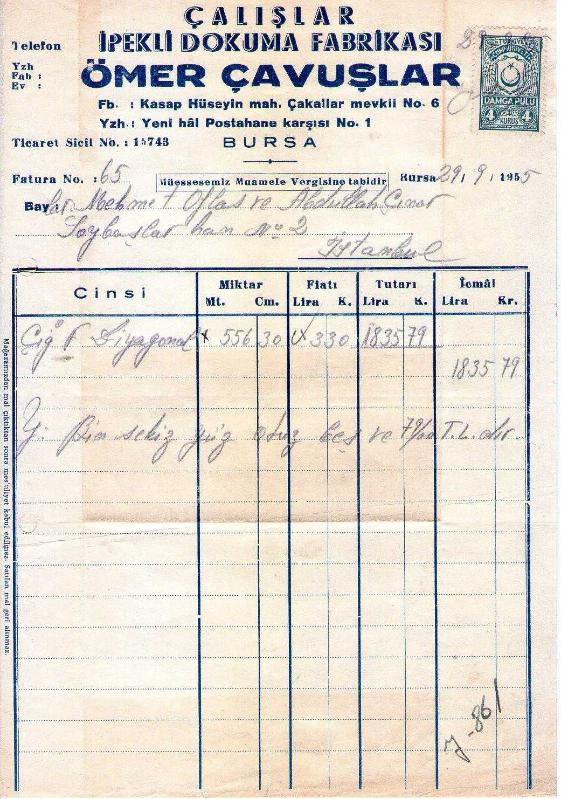 ÇALIŞLAR
İPEKLİ DOKUMA FABRİKASI
ÖMER ÇAVUŞLAR
Telefon
Yzh :
Fab :
Ev :
Fb. : Kasap Hüseyin mah. Çakallar mevkii No. 6
Yzh.: Yeni hâl Postahane karşısı No. 1
Ticaret Sicil No. : 15743
BURSA
DAMGA PULU
4 KURUŞ 4
Fatura No. : 65
Müessesemiz Muamele Vergisine tabidir
Bursa 29/9/1955
Bay: lar Mehmet Oflas ve Abdullah Çınar
han No 2
İstanbul
Cinsi Miktar Fiatı Tutarı İcmâl
Mt. Cm. Lira K. Lira K. Lira Kr.
Diyagonal x 556 30 330 1835 79
1835 79
Y. Bin sekiz yüz otuz beş ve 79/00 T.L. dır.
Mağazamızdan mal çıktıktan sonra mes'uliyet kabul edilmez. Satılan mal geri alınmaz.
y-861